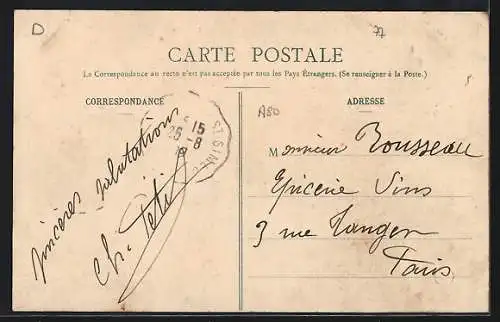 D
77
CARTE POSTALE
La Correspondance au recto n'est pas acceptée par tous les Pays Étrangers. (Se renseigner à la Poste.)
CORRESPONDANCE
ADRESSE
A80
15
26-8
ST SIM
sincères salutations
Ch. Petit
Monsieur Rousseau
Epicerie Vins
3 rue Tanger
Paris